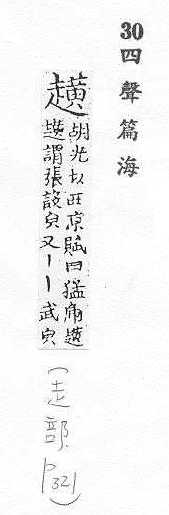 30 四聲篇海
趪
胡光切西京賦曰猛趪
趪謂張設皃又丨丨武皃
(走部 P321)